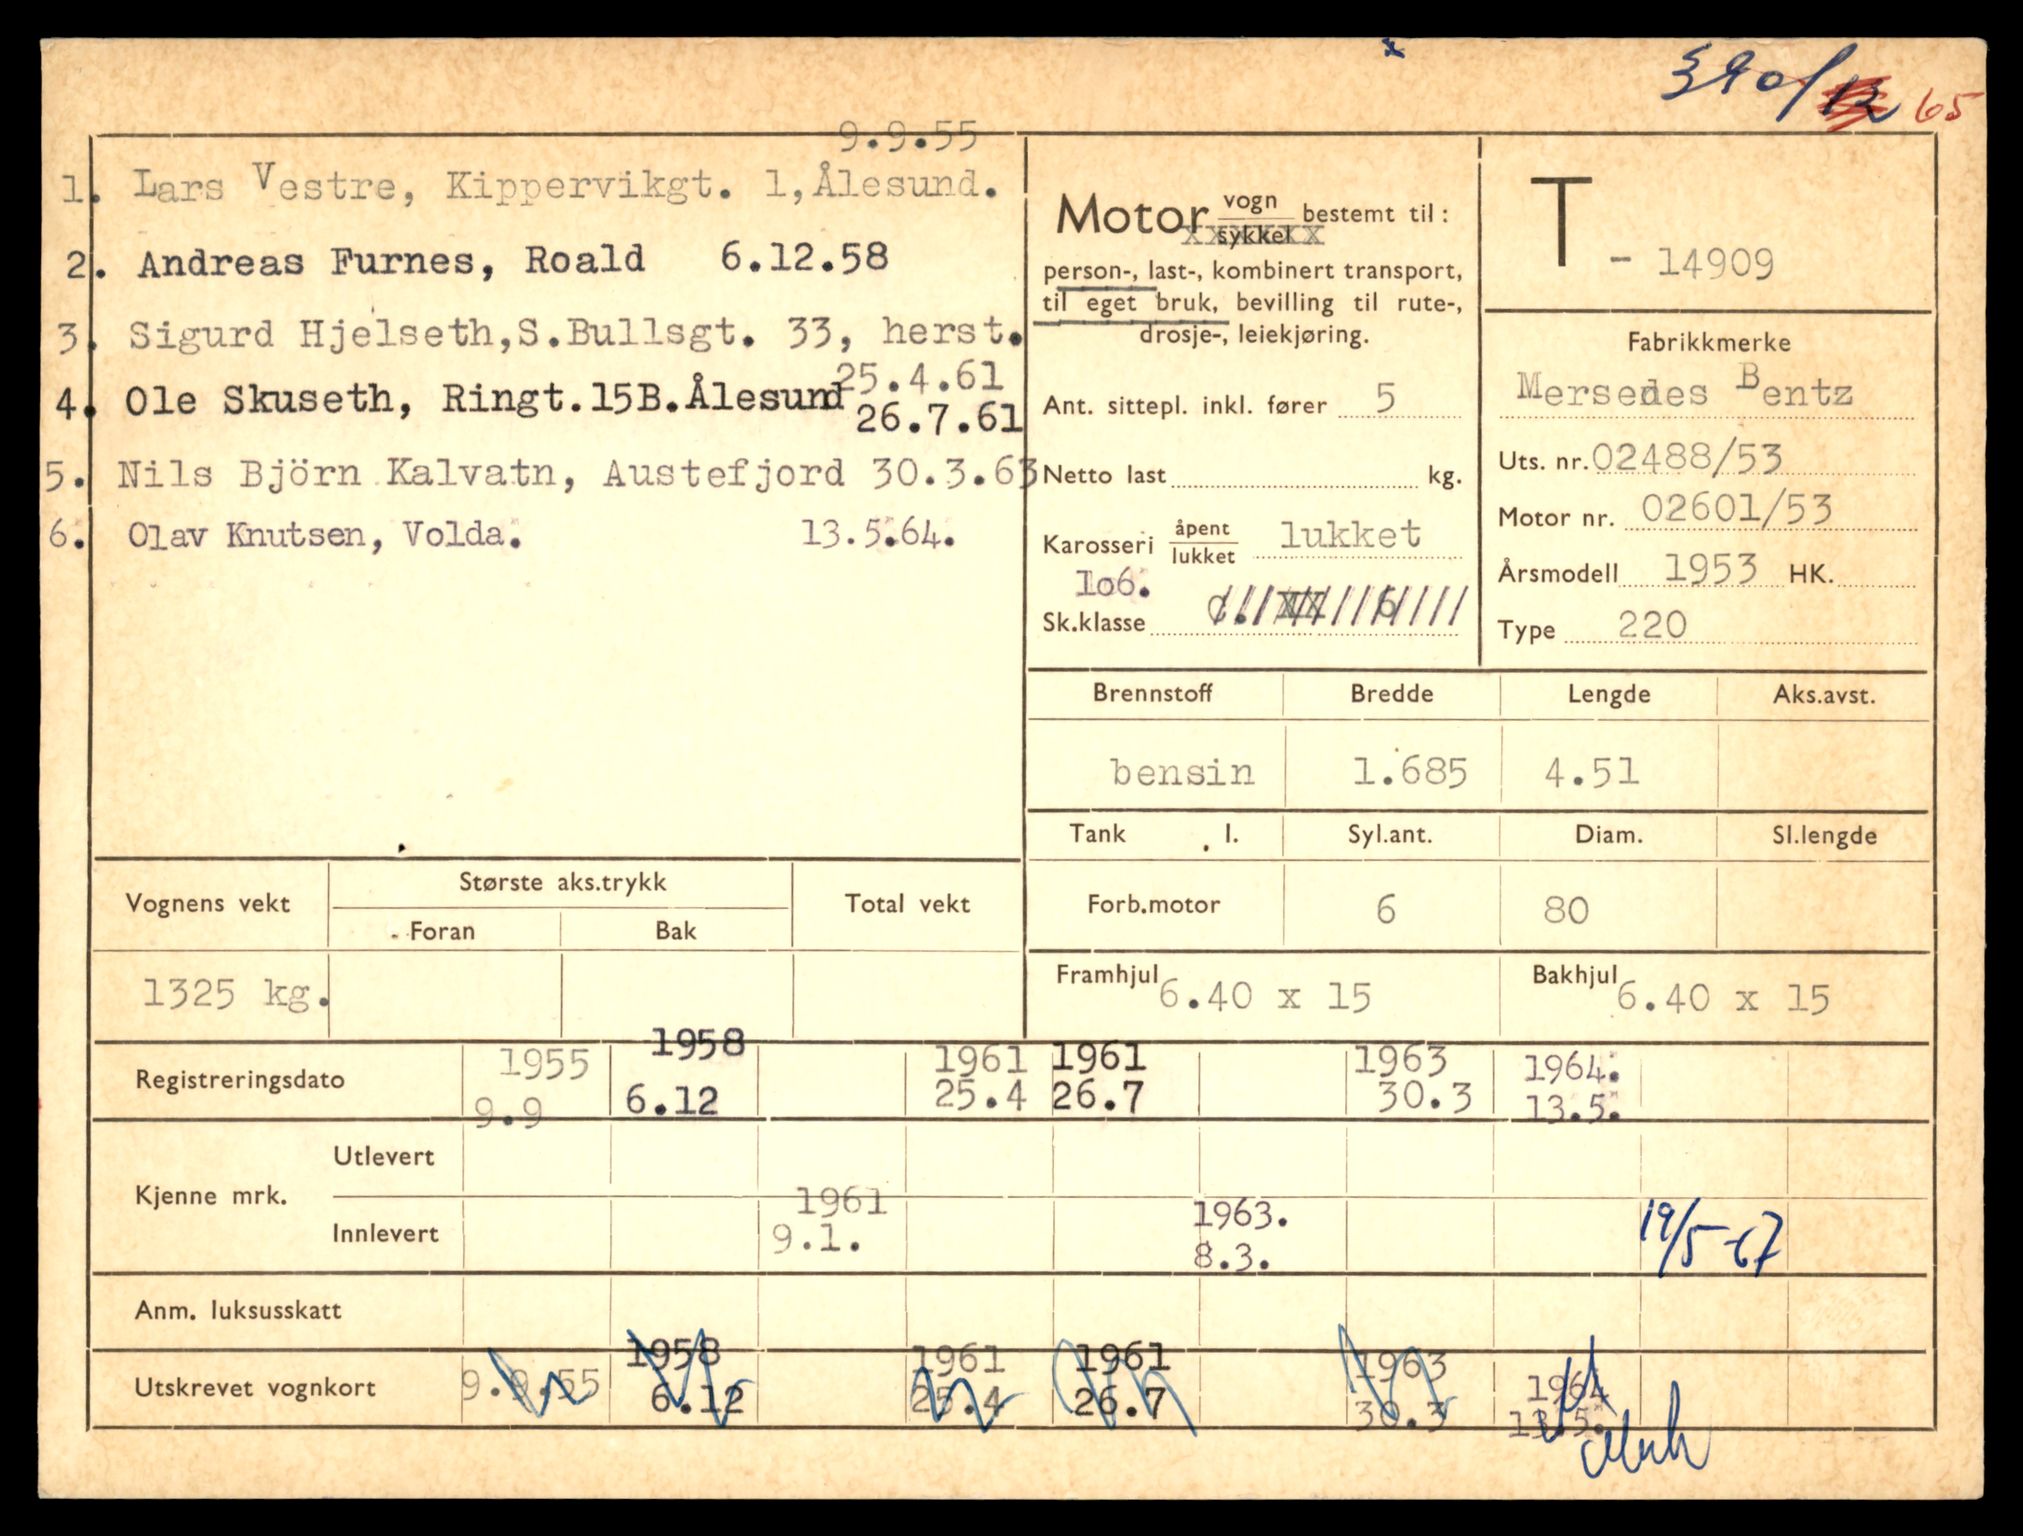 390/12 65
9.9.55
1. Lars Vestre, Kippervikgt. 1, Ålesund.
2. Andreas Furnes, Roald 6.12.58
3. Sigurd Hjelseth,S.Bullsgt. 33, herst.
25.4.61
4. Ole Skuseth, Ringt.15B.Ålesund
26.7.61
5. Nils Björn Kalvatn, Austefjord 30.3.63
6. Olav Knutsen, Volda. 13.5.64.
Motor vogn sykkel bestemt til:
person-, last-, kombinert transport,
til eget bruk, bevilling til rute-,
drosje-, leiekjøring.
Ant. sittepl. inkl. fører 5
Netto last kg.
Karosseri åpent lukket lukket
106.
Sk.klasse
T - 14909
Fabrikkmerke
Mersedes Bentz
Uts. nr. 02488/53
Motor nr. 02601/53
Årsmodell 1953 HK.
Type 220
Brennstoff Bredde Lengde Aks.avst.
bensin 1.685 4.51
Tank l. Syl.ant. Diam. Sl.lengde
Forb.motor 6 80
Framhjul 6.40 x 15 Bakhjul 6.40 x 15
Vognens vekt Største aks.trykk Total vekt
Foran Bak
1325 kg.
1955 1958 1961 1961 1963 1964.
Registreringsdato
9.9 6.12 25.4 26.7 30.3 13.5.
Kjenne mrk.
Utlevert
Innlevert
1961 1963.
9.1. 8.3. 19/5-67
Anm. luksusskatt
1958 1961 1961 1963 1964
Utskrevet vognkort
9.9.55 6.12 25.4 26.7 30.3 13.5.